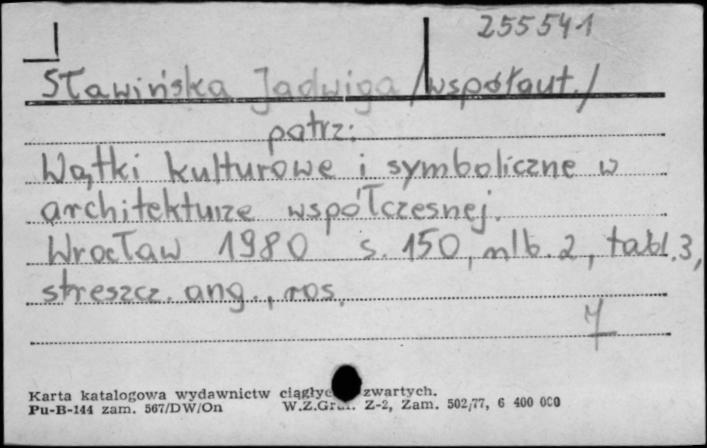 255541
Sławińska Jadwiga /współaut./
patrz:
Wątki kulturowe i symboliczne w
architekturze współczesnej.
Wrocław 1980 s. 150, nlb. 2, tabl. 3,
streszcz. ang., ros.
Karta katalogowa wydawnictw zwartych.
Pu-B-144 zam. 567/DW/On W.Z.Graf. Z-2, Zam. 502/77, 6 400 000